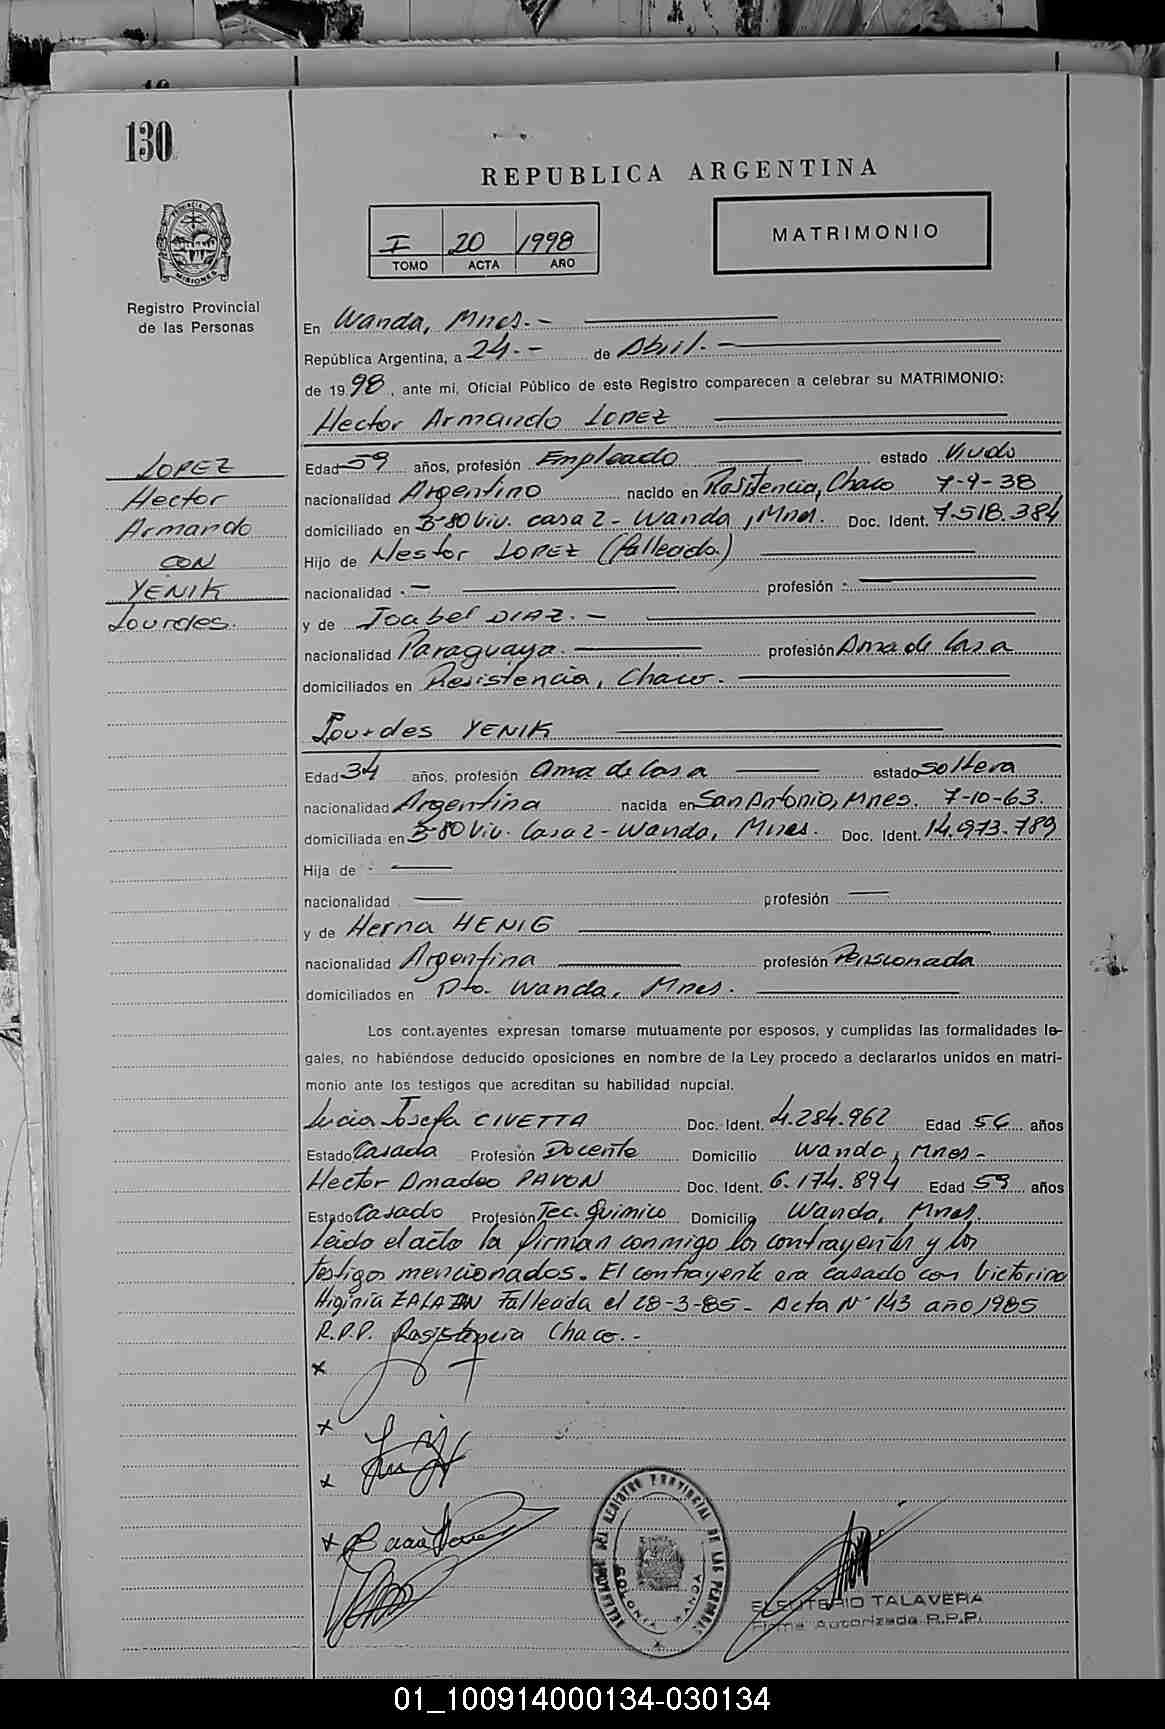 130
REPUBLICA ARGENTINA
I 20 1998
TOMO ACTA AÑO
MATRIMONIO
PROVINCIA DE MISIONES
Registro Provincial
de las Personas
LOPEZ
Hector
Armando
CON
YENIK
Lourdes.
En Wanda, Mnes.-
República Argentina, a 24.- de Abril.-
de 1998, ante mi, Oficial Público de este Registro comparecen a celebrar su MATRIMONIO:
Hector Armando LOPEZ
Edad 59 años, profesión Empleado estado Viudo
nacionalidad Argentino nacido en Resistencia, Chaco 7-9-38
domiciliado en B-80 Viv. casa 2- Wanda, Mnes. Doc. Ident. 7.518.384
Hijo de Nestor LOPEZ (fallecido.)
nacionalidad .- profesión -
y de Isabel DIAZ.-
nacionalidad Paraguaya. profesión Ama de Casa
domiciliados en Resistencia, Chaco.
Lourdes YENIK
Edad 34 años, profesión Ama de Casa estado Soltera
nacionalidad Argentina nacida en San Antonio, Mnes. 7-10-63.
domiciliada en B-80 Viv. Casa 2- Wanda, Mnes. Doc. Ident. 14.973.789
Hija de -
nacionalidad profesión
y de Herna HENIG
nacionalidad Argentina profesión Pensionada
domiciliados en Pto. Wanda, Mnes.
Los cont.ayentes expresan tomarse mutuamente por esposos, y cumplidas las formalidades le-
gales, no habiéndose deducido oposiciones en nombre de la Ley procedo a declararlos unidos en matri-
monio ante los testigos que acreditan su habilidad nupcial.
Lucia Josefa CIVETTA Doc. Ident. 4.284.962 Edad 56 años
Estado Casada Profesión Docente Domicilio Wanda, Mnes-
Hector Amadeo PAVON Doc. Ident. 6.174.894 Edad 59 años
Estado Casado Profesión Tec. Quimico Domicilio Wanda, Mnes.
Leido el acto la firman conmigo los contrayentes y los
testigos mencionados. El contrayente era casado con Victorina
Higinia Fallecida el 28-3-85- Acta Nº 143 año 1985
R.P.P. Resistencia Chaco.-
x
x
x
x
DEL REGISTRO PROVINCIAL DE LAS PERSONAS
COLONIA WANDA
ELEUTERIO TALAVERA
Firma Autorizada R.P.P.
01_100914000134-030134